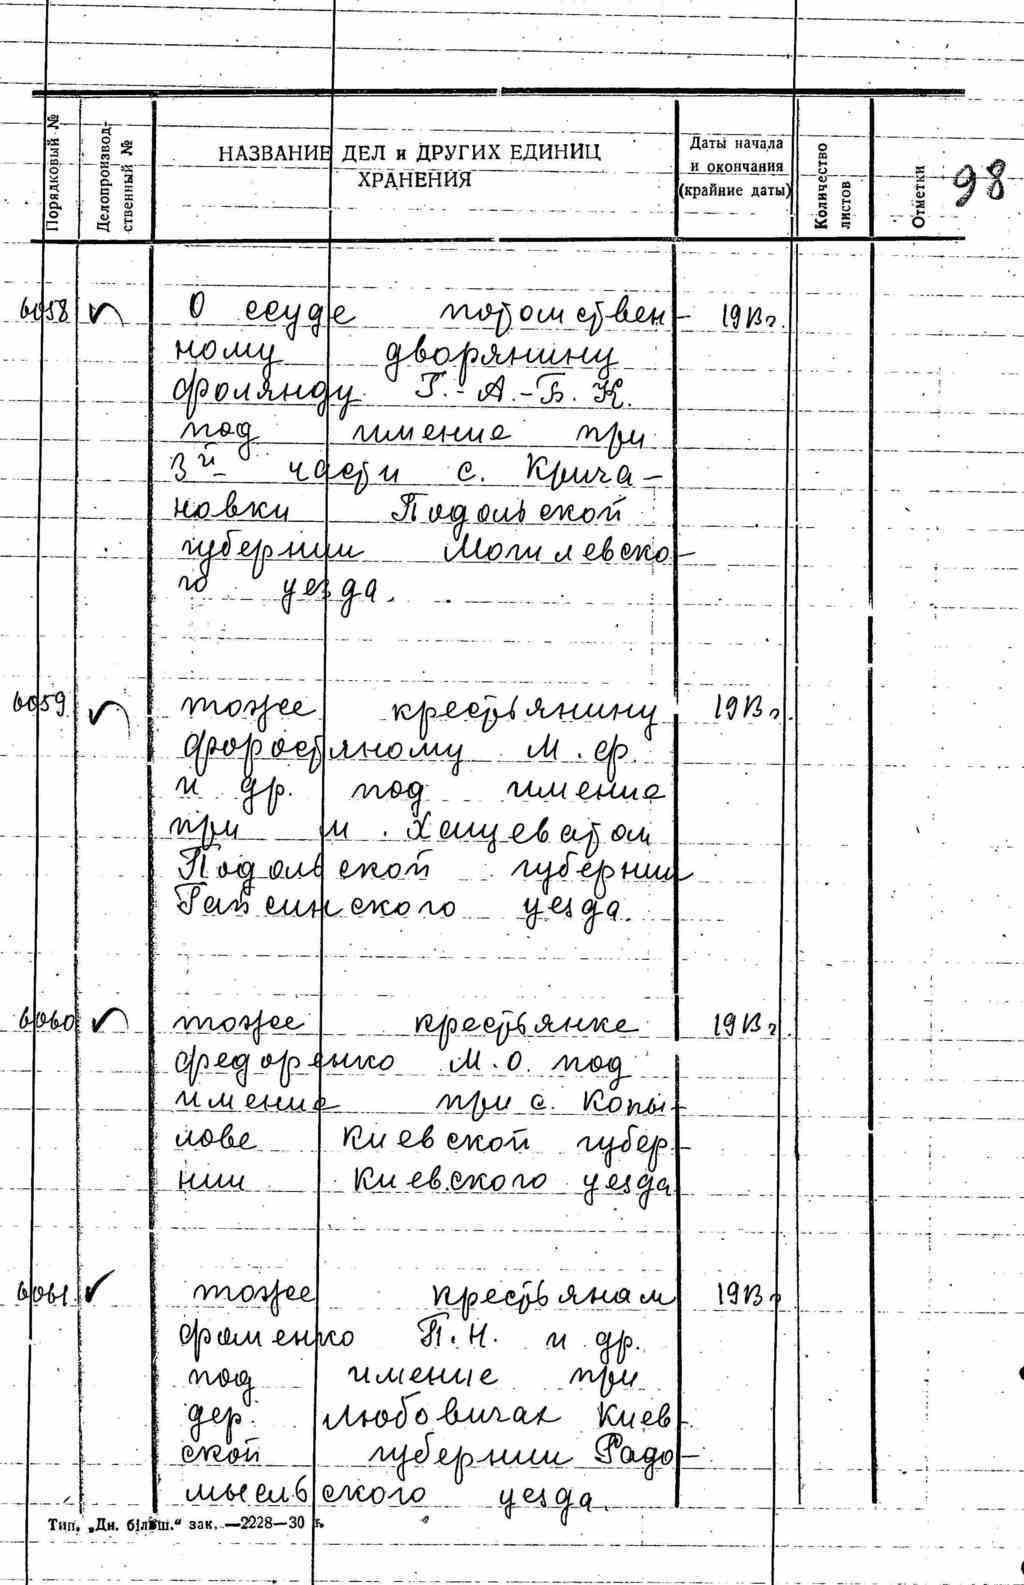 98
Порядковый №
Делопроизвод-
ственный №
НАЗВАНИЕ ДЕЛ и ДРУГИХ ЕДИНИЦ
ХРАНЕНИЯ
Даты начала
и окончания
(крайние даты)
Количество
листов
Отметки
6058 О ссуде потомствен- 1913 г.
ному дворянину
Фолянду Г.-А.-Б. К.
под имение при
3й части с. Крича-
новки Подольской
губернии Могилевско-
го уезда.
6059 тоже крестьянину 1913 г.
Форостяному М. Ф.
и др. под имение
при м. Хащеватом
Подольской губернии
Гайсинского уезда.
6060 тоже крестьянке 1913 г.
Федоренко М. О. под
имение при с. Копы-
лове Киевской губер-
нии Киевского уезда
6061 тоже крестьянам 1913 г.
Фоменко П. Н. и др.
под имение при
дер. Любовичах Киев-
ской губернии Радо-
мысльского уезда.
Тип. „Дн. більш." зак. —2228—30 г.